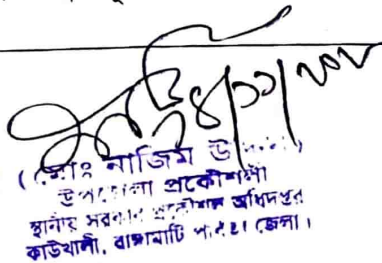 ২৪/১১/২২
(মোঃ নাজিম উ
উপজেলা প্রকৌশলী
স্থানীয় সরকার প্রকৌশল অধিদপ্তর
কাউখালী, রাঙ্গামাটি পার্বত্য জেলা।